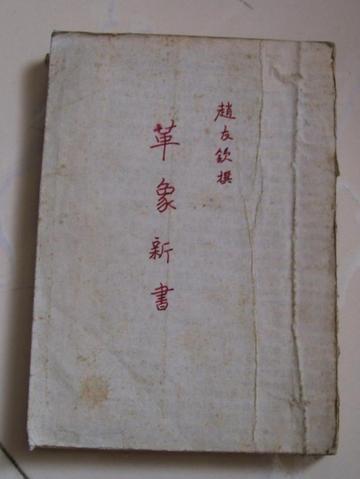 趙友欽撰
革象新書